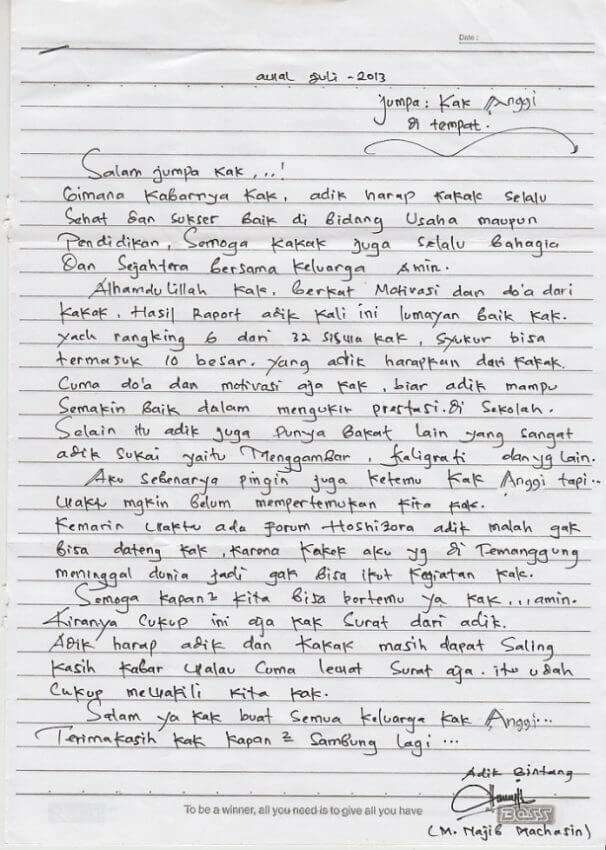 Date :
awal Juli - 2013
Jumpa : Kak Anggi
di tempat.
Salam jumpa kak,...!
Gimana kabarnya kak, adik harap kakak selalu
Sehat dan sukses Baik di Bidang Usaha maupun
Pendidikan, Semoga kakak juga selalu Bahagia
Dan Sejahtera Bersama keluarga Amin.
Alhamdulillah kak, Berkat Motivasi dan do'a dari
kakak, Hasil Raport adik kali ini lumayan Baik kak.
yach rangking 6 dari 32 siswa kak, syukur bisa
termasuk 10 besar. yang adik harapkan dari kakak.
Cuma do'a dan motivasi aja kak, biar adik mampu
Semakin Baik dalam mengukir prestasi di Sekolah.
Selain itu adik juga Punya Bakat lain yang sangat
adik sukai yaitu Menggambar, kaligrafi dan yg lain.
Aku sebenarya pingin juga ketemu Kak Anggi tapi..
waktu mgkin Belum mempertemukan kita kak.
Kemarin waktu ada Forum Hoshizora adik malah gak
Bisa dateng kak, karena kakek aku yg di Temanggung
meninggal dunia jadi gak Bisa ikut kegiatan kak.
Semoga kapan² kita Bisa bertemu ya kak...amin.
Kiranya Cukup ini aja kak Surat dari adik.
Adik harap adik dan kakak masih dapat Saling
kasih kabar walau Cuma lewat Surat aja. itu udah
Cukup mewakili kita kak.
Salam ya kak buat Semua keluarga kak Anggi...
Terimakasih kak kapan² Sambung lagi...
Adik Bintang
To be a winner, all you need is to give all you have
BOSS
(M. Najib Machasin)